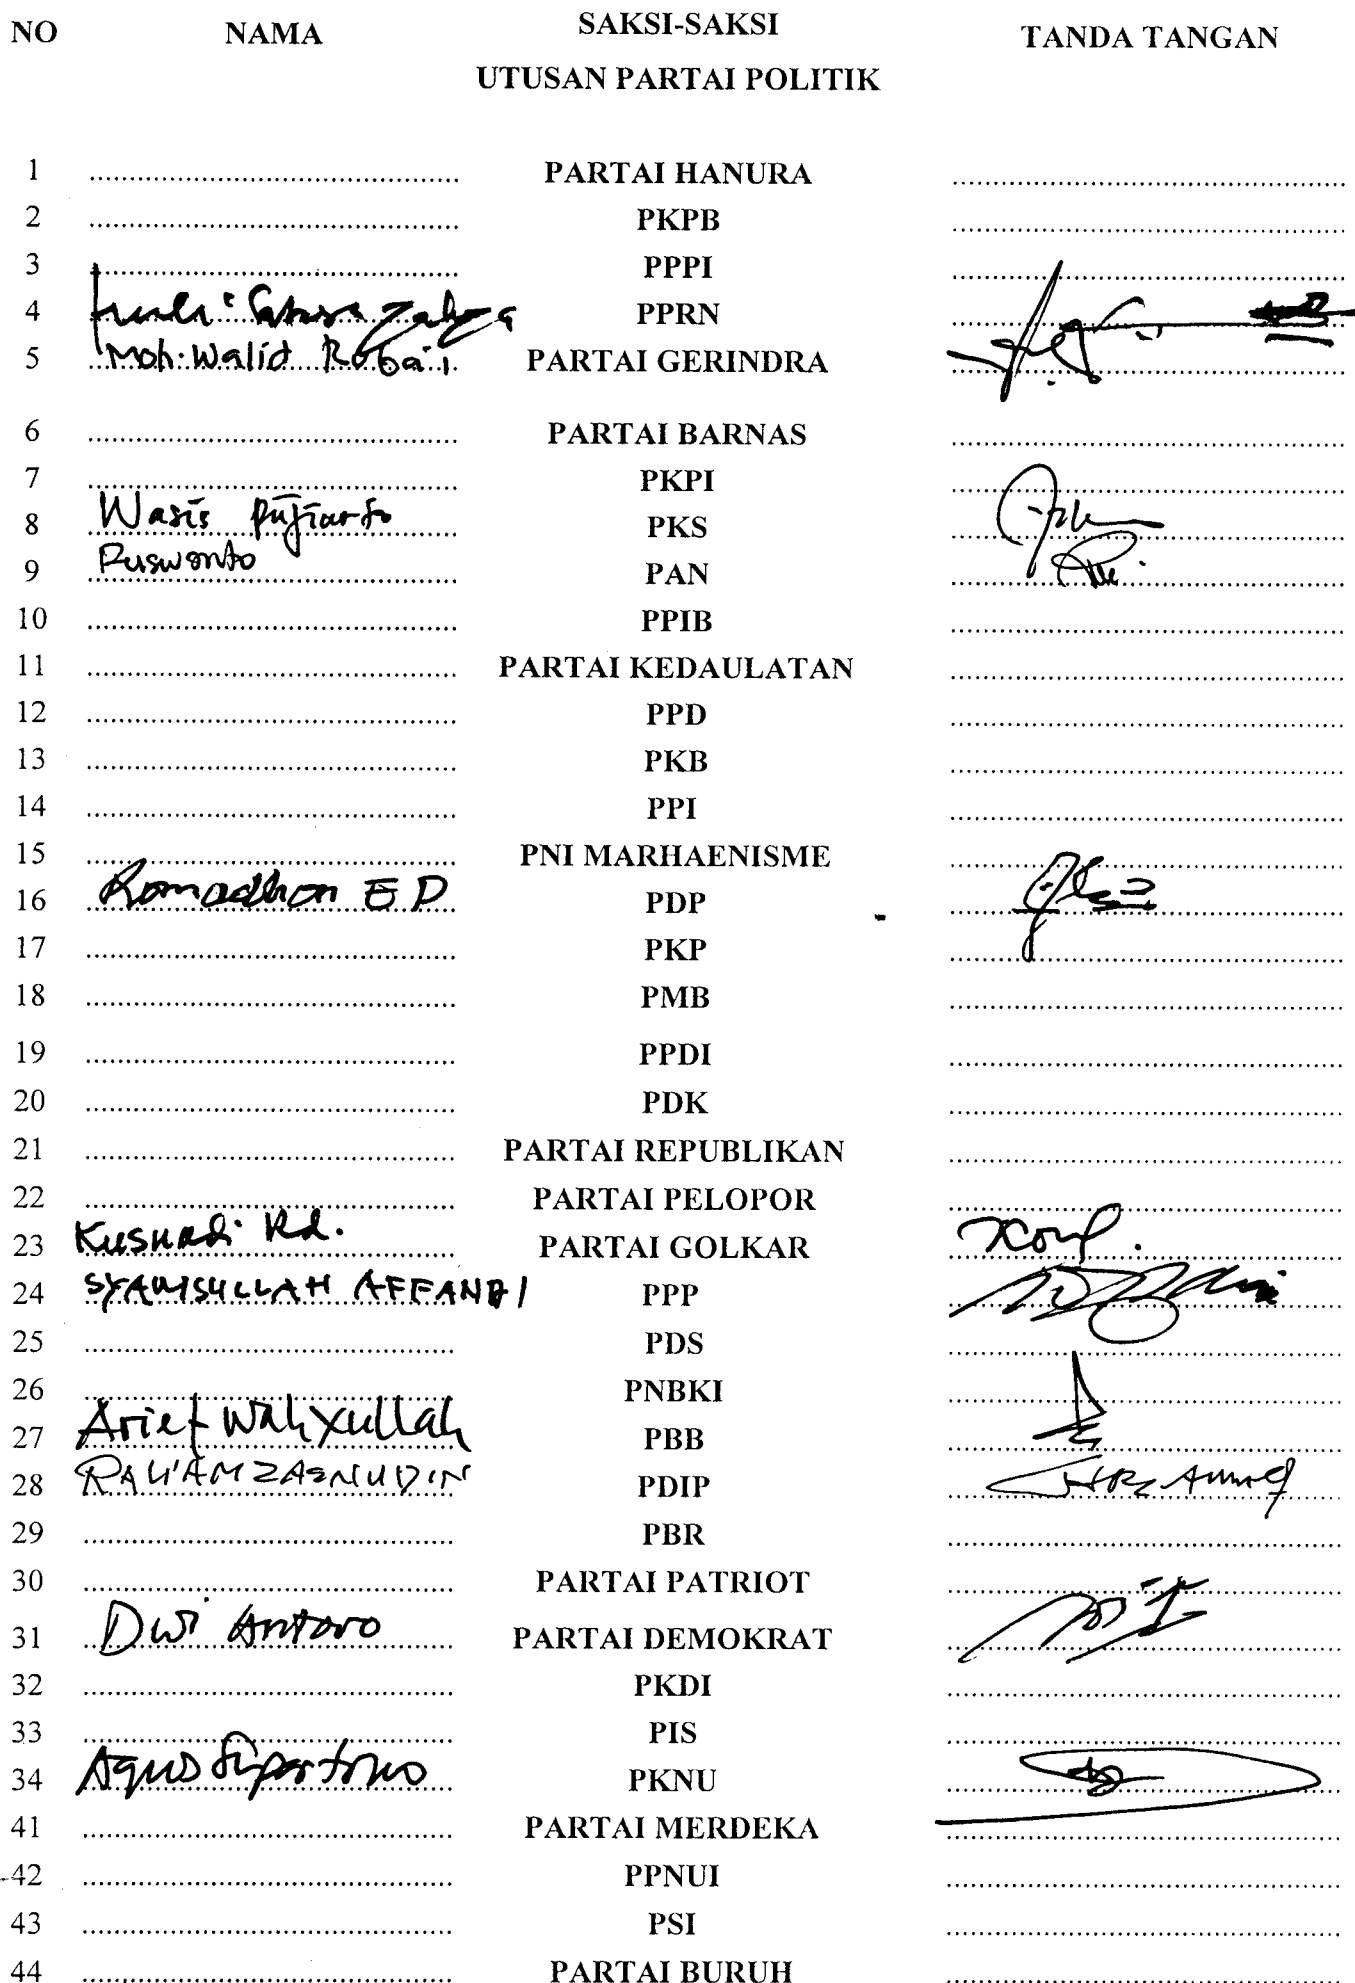 NO NAMA SAKSI-SAKSI TANDA TANGAN
UTUSAN PARTAI POLITIK
1 PARTAI HANURA
2 PKPB
3 PPPI
4 PPRN
5 Moh. Walid Roba'i PARTAI GERINDRA
6 PARTAI BARNAS
7 PKPI
8 Wasis Pujiarto PKS
9 Ruswanto PAN
10 PPIB
11 PARTAI KEDAULATAN
12 PPD
13 PKB
14 PPI
15 PNI MARHAENISME
16 Romadhon E D PDP
17 PKP
18 PMB
19 PPDI
20 PDK
21 PARTAI REPUBLIKAN
22 PARTAI PELOPOR
23 Kusnadi Rd. PARTAI GOLKAR
24 SYAMSULLAH AFFANDI PPP
25 PDS
26 PNBKI
27 Arief Wahyullah PBB
28 PDIP
29 PBR
30 PARTAI PATRIOT
31 Dwi Antoro PARTAI DEMOKRAT
32 PKDI
33 PIS
34 Agus PKNU
41 PARTAI MERDEKA
42 PPNUI
43 PSI
44 PARTAI BURUH